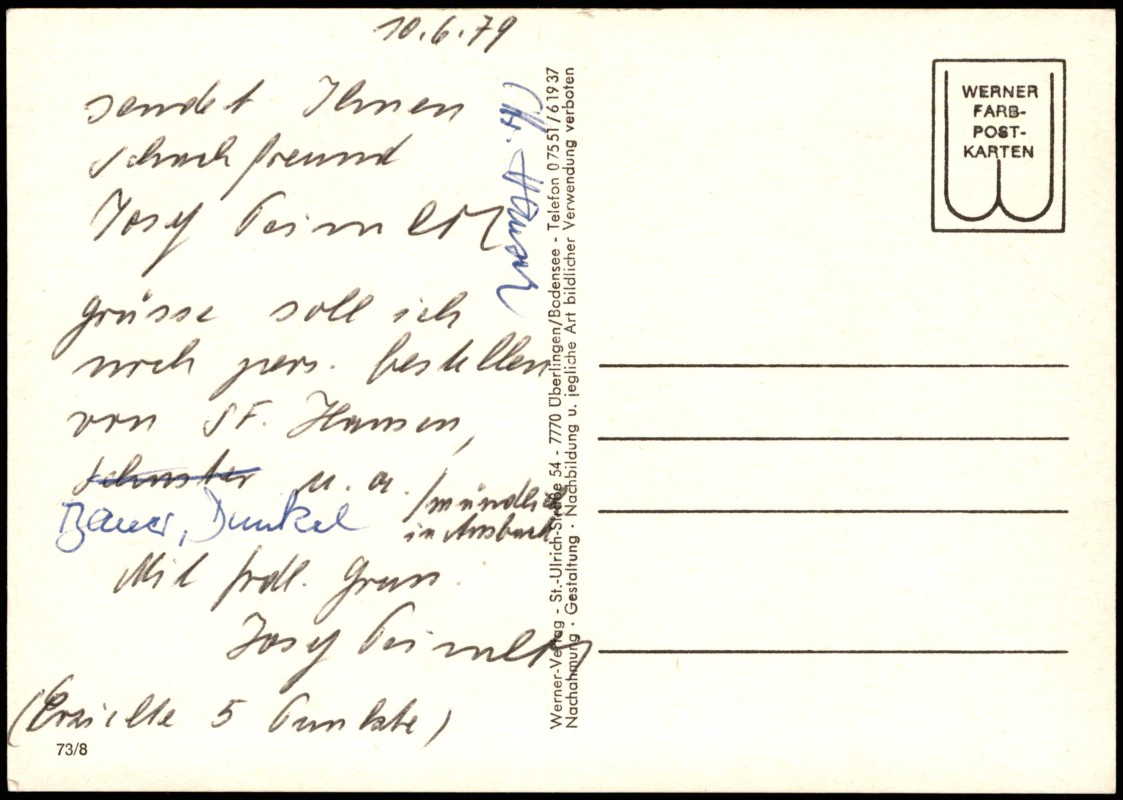 10.6.79
sendet Ihnen
Schachfreund
Josef
Grüsse soll ich
noch pers. bestellen
von SF. Hansen,
Schuster u. a. /mündlich
Bauer, Dunkel in Ansbach
Mit frdl. Gruss.
Josef
(Erzielte 5 Punkte)
73/8
Werner-Verlag - St.-Ulrich-Straße 54 - 7770 Überlingen/Bodensee - Telefon 07551/61937
Nachahmung · Gestaltung · Nachbildung u. jegliche Art bildlicher Verwendung verboten
WERNER
FARB-
POST-
KARTEN